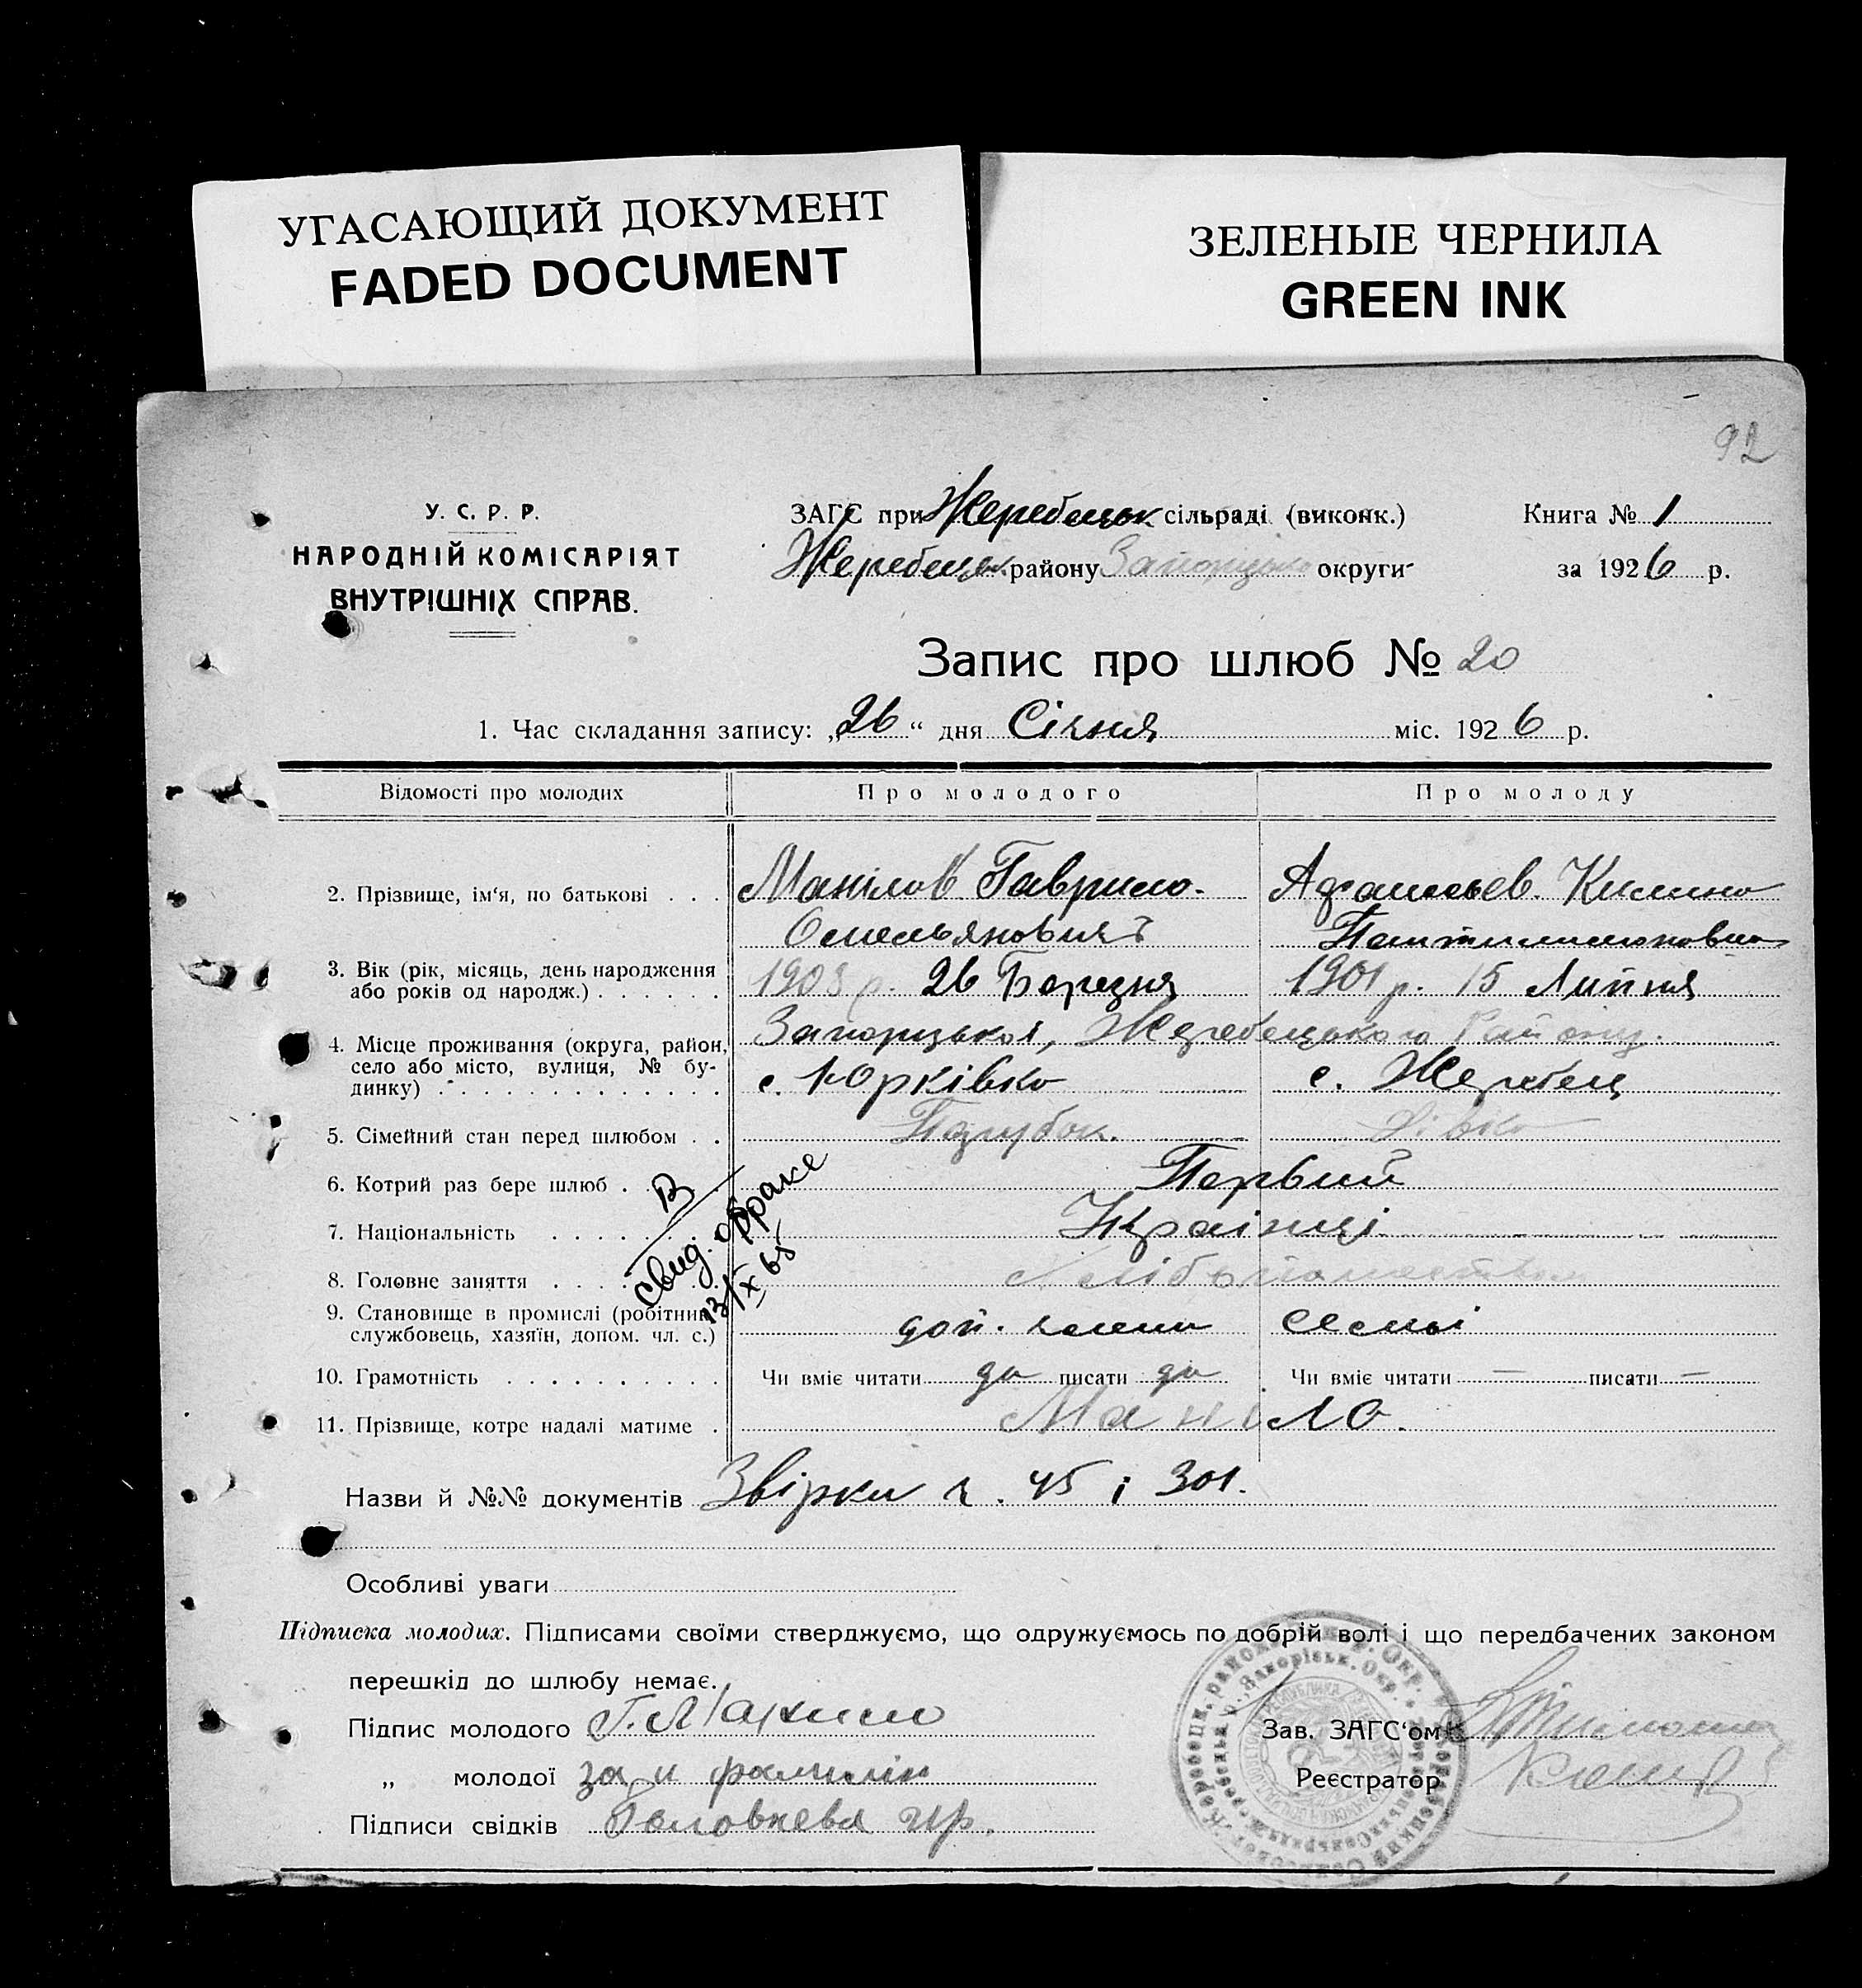 УГАСАЮЩИЙ ДОКУМЕНТ
FADED DOCUMENT
ЗЕЛЕНЫЕ ЧЕРНИЛА
GREEN INK
92
У. С. Р. Р.
НАРОДНІЙ КОМІСАРІЯТ
ВНУТРІШНІХ СПРАВ.
ЗАГС при Жеребецьк сільраді (виконк.)
Жеребецьк. району Запорізько округи
Книга № 1
за 1926 р.
Запис про шлюб № 20
1. Час складання запису: „26“ дня Січня міс. 1926 р.
Відомості про молодих
Про молодого
Про молоду
2. Прізвище, ім'я, по батькові . . .
Манілов Гаврило.
Омельянович
Килина
3. Вік (рік, місяць, день народження
або років од народж.) . . . . . .
1903 р. 26 Березня
1901 р. 15 Липня
4. Місце проживання (округа, район,
село або місто, вулиця, № бу-
динку) . . . . . . . . . . . . .
Запорізької, Жеребецького Району.
с. Юрківка
с. Жеребец
5. Сімейний стан перед шлюбом . .
Парубок.
Дівка
6. Котрий раз бере шлюб .
Первий
7. Національність . . . .
Українці
8. Головне заняття . . . .
9. Становище в промислі (робітник,
службовець, хазяїн, допом. чл. с.)
доп. члени семьі
В
свид. о браке
13/IX 65
10. Грамотність . . . . . . . . . .
Чи вміє читати да писати да
Чи вміє читати — писати —
11. Прізвище, котре надалі матиме .
Маніло.
Назви й №№ документів Звірки ч. 45 і 301.
Особливі уваги
Підписка молодих. Підписами своїми стверджуємо, що одружуємось по добрій волі і що передбачених законом
перешкід до шлюбу немає.
Підпис молодого Г. Манило
„ молодої
Підписи свідків
Зав. ЗАГС'ом
Реєстратор